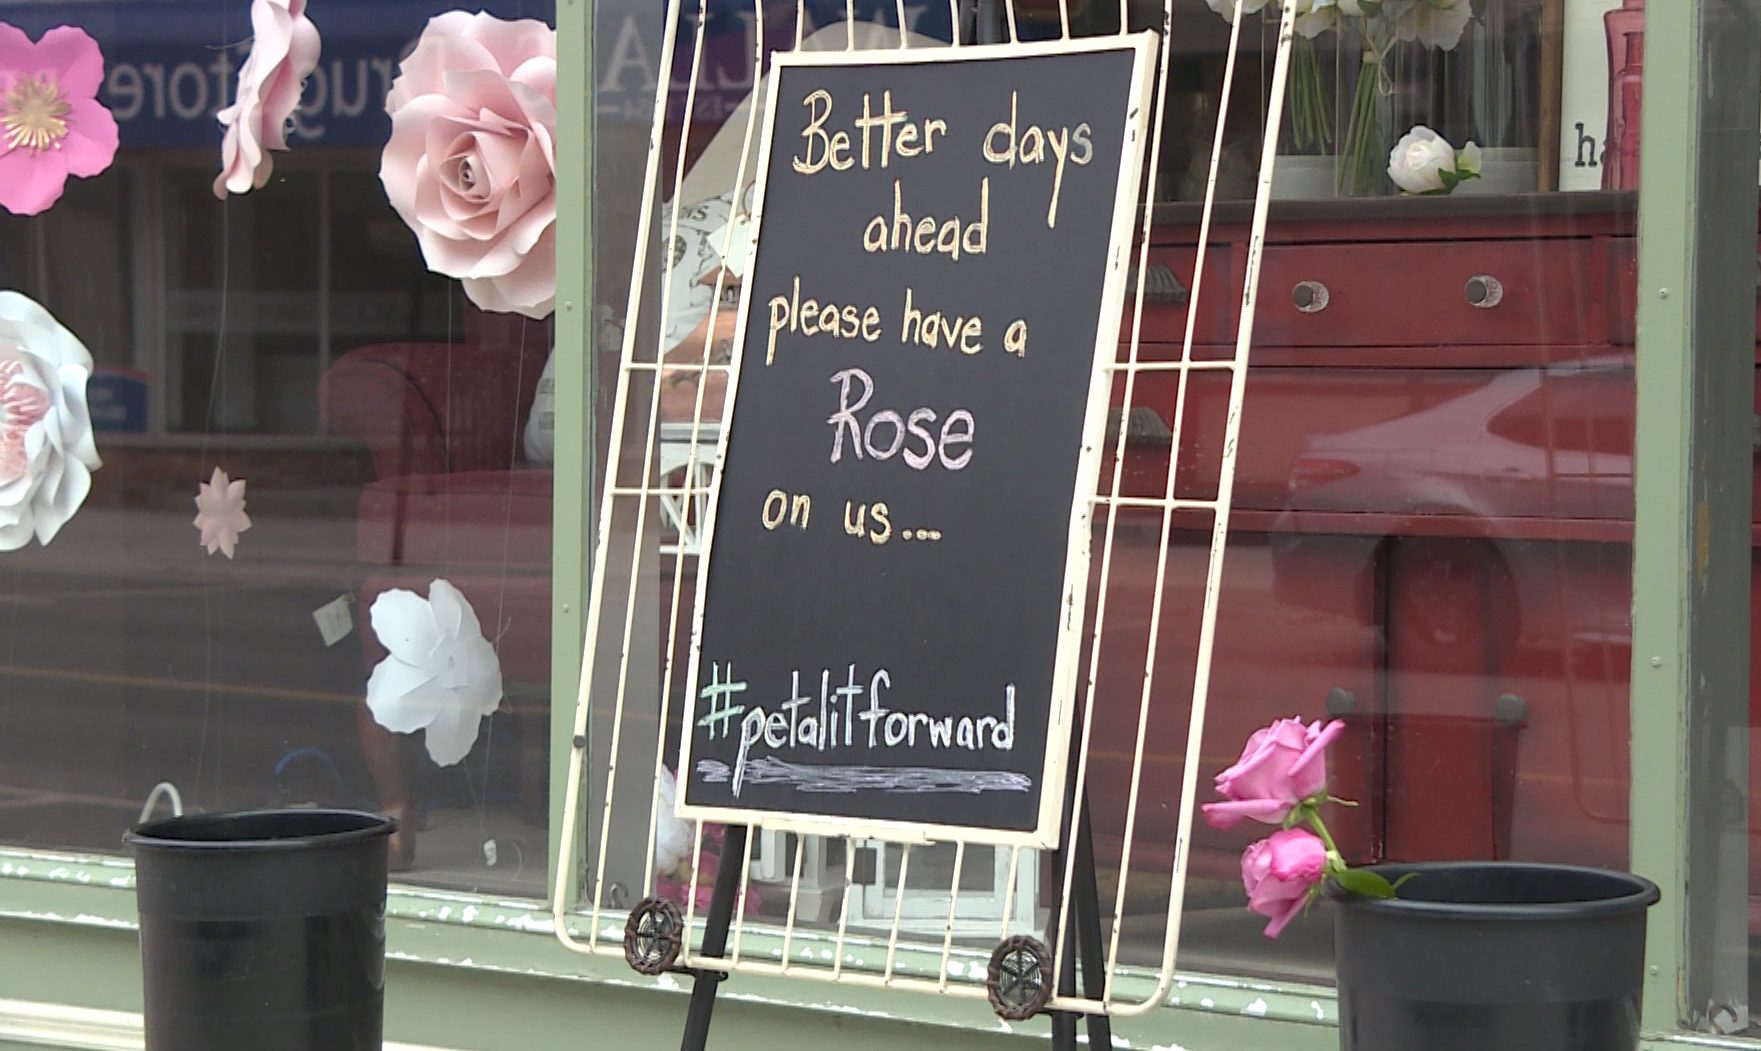 Better days
ahead
please have a
Rose
on us...
#petalitforward
Drug Store